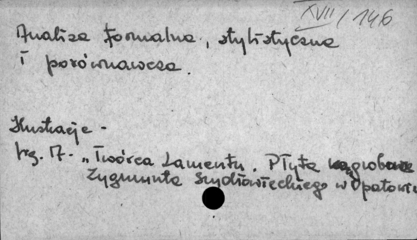 XVII/146
Analiza formalna, stylistyczna
i porównawcza.
Ilustracje -
frg. M. "Twórca Lamentu. Płyta nagrobna
Zygmunta Szydłowieckiego w Opatowie